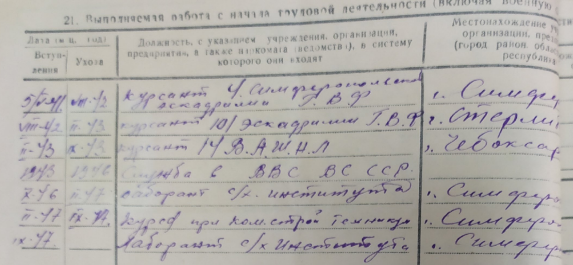 21. Выполняемая работа с начала трудовой деятельности (включая военную
Дата (м-ц, год)
Вступления
Ухода
Должность, с указанием учреждения, организации, предприятия, а также наркомата (ведомства), в систему которого они входят
Местонахождение
организации,
(город, район,
республика
VIII-42 Курсант Симферопольской г. Симфер
эскадрилии Г.В.Ф
VIII-42 II-43 курсант 10/ эскадрилии Г.В.Ф г. Стерли
II-43 IX-43 курсант 14 В.А.Ш.Н.Л г. Чебоксар
1943 1946 Служба в ВВС ВС ССР.
X-46 II-47 лаборант с/х. института г. Симфероп
II-47 IX-47 курсы при г. Симфероп
IX-47 Лаборант с/х Института г. Симфер